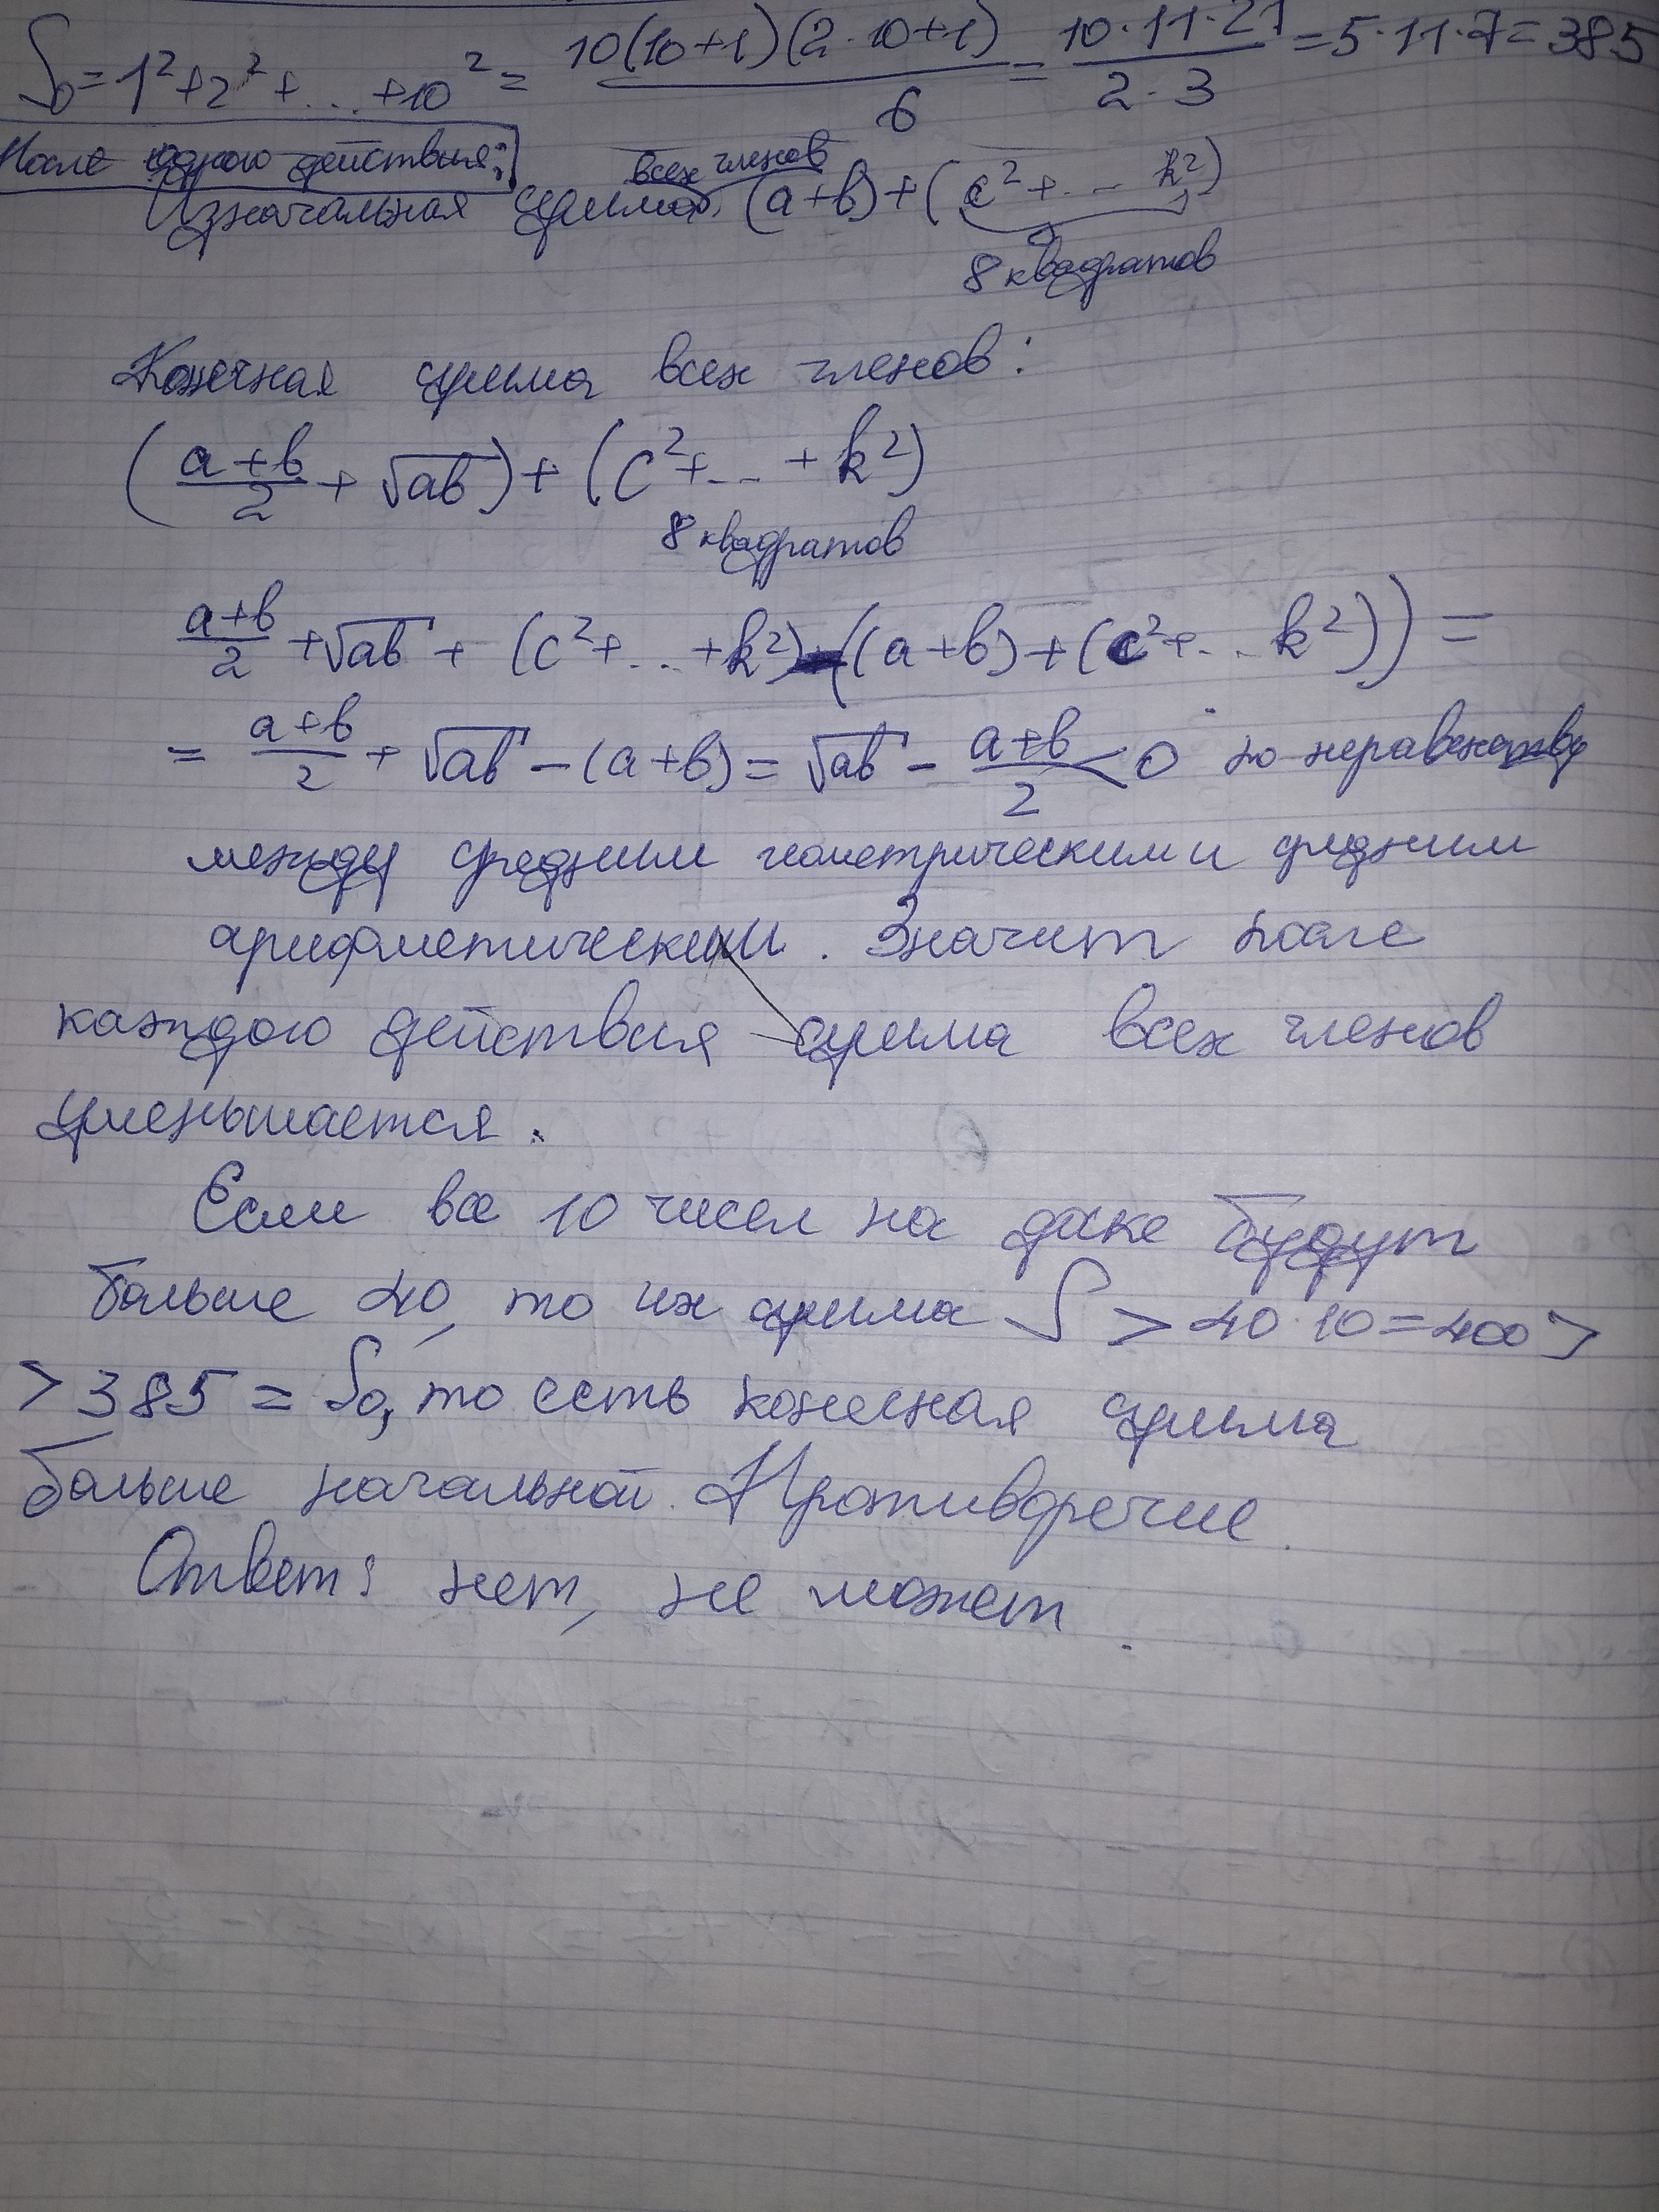 S₀=1²+2²+...+10²= 10(10+1)(2·10+1)/6 = 10·11·21/2·3 =5·11·7=385
После одного действия:
Изначальная сумма всех членов (a+b)+(c²+...k²)
8 квадратов
Конечная сумма всех членов:
(a+b/2 + √ab)+(c²+...+k²)
8 квадратов
a+b/2 +√ab + (c²+...+k²)-((a+b)+(c²+...k²))=
= a+b/2 + √ab -(a+b)= √ab - a+b/2 <0 по неравенству
между средним геометрическим и средним
арифметическим. Значит после
каждого действия сумма всех членов
уменьшается.
Если все 10 чисел на доске будут
больше 40, то их сумма S > 40·10=400>
>385=S₀, то есть конечная сумма
больше начальной. Противоречие.
Ответ: нет, не может.